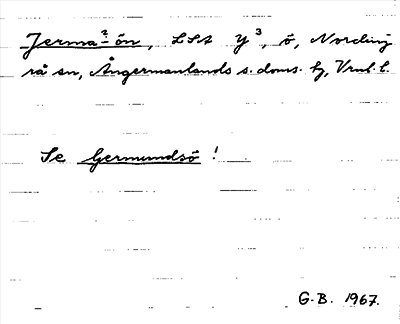 Jerma²-ön, LSA Y³, ö, Nording-
rå sn, Ångermanlands s. doms. hg, Vrnl. l.
Se Germundsö !
G.B. 1967.